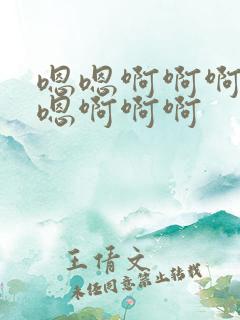 嗯嗯啊啊啊
嗯啊啊啊
王倩文
未经同意禁止转载